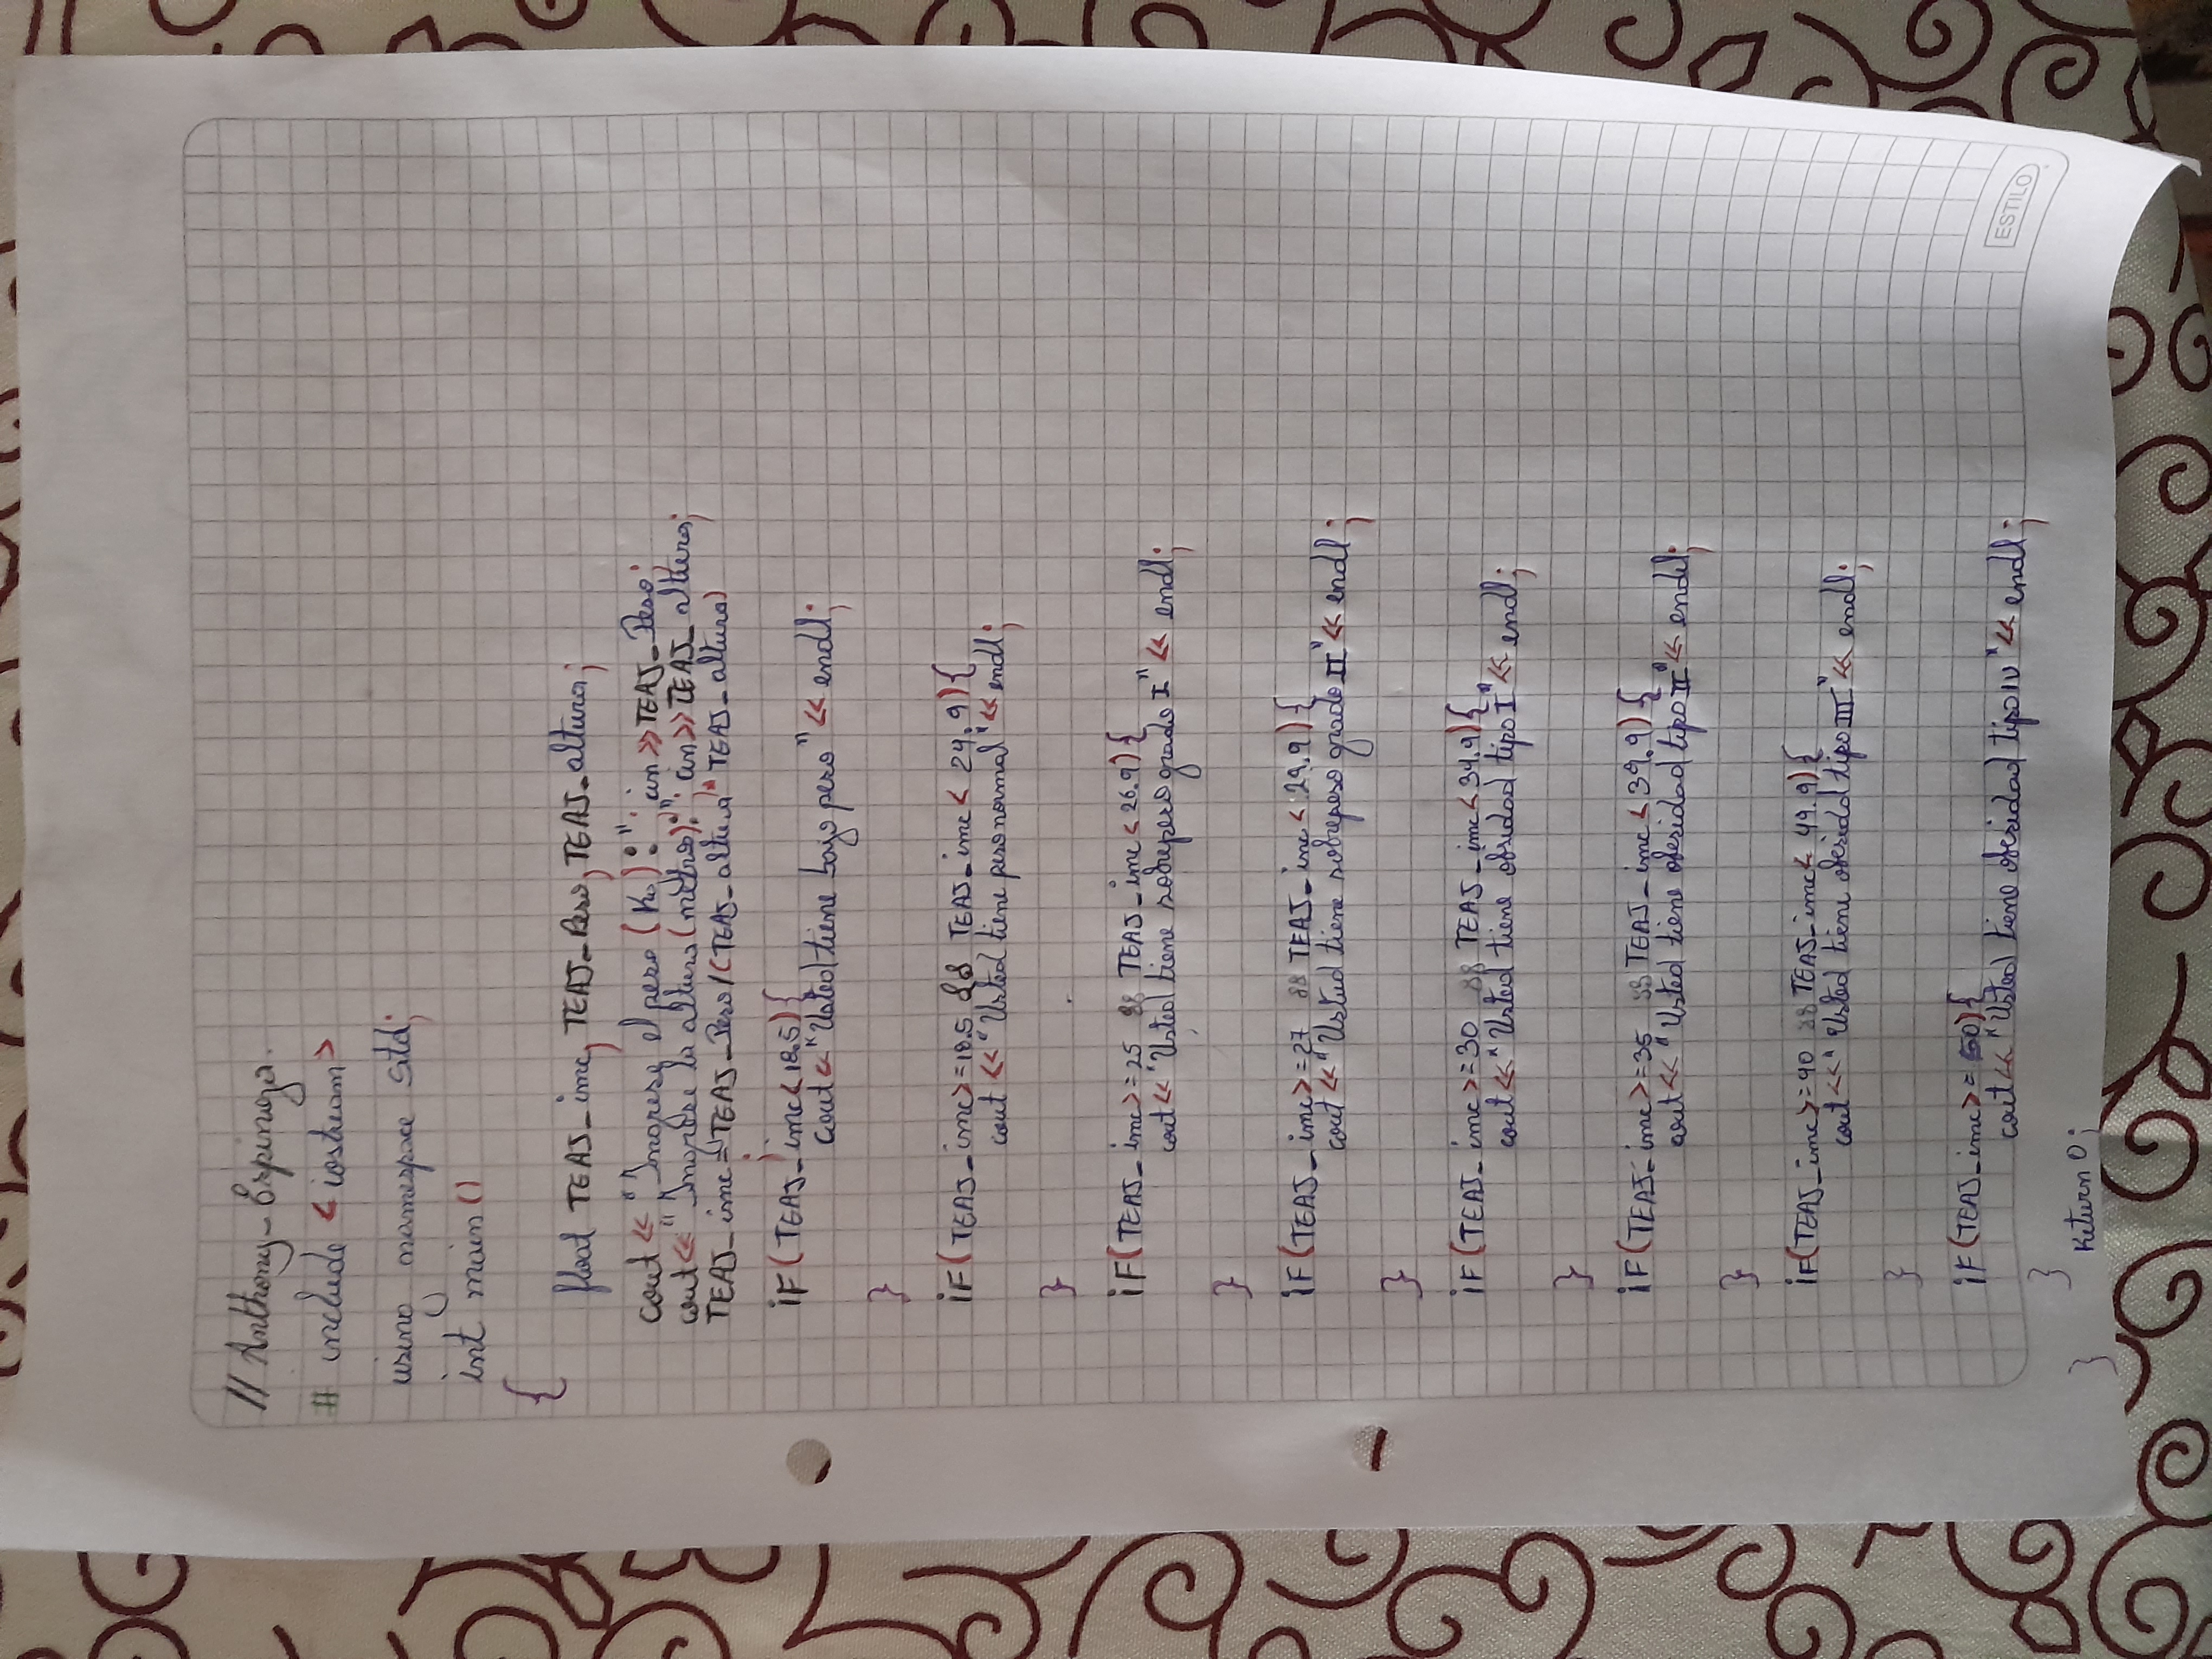 // Anthony_Espinoza.
# include <iostream>
using namespace std;
int main()
{
float TEAJ_imc, TEAJ_Peso, TEAJ_altura;
cout << "Ingrese el peso (Kg):"; cin >> TEAJ_Peso;
cout << "Ingrese la altura (metros):"; cin >> TEAJ_altura;
TEAJ_imc = TEAJ_Peso / (TEAJ_altura * TEAJ_altura)
;
iF (TEAJ_imc < 18.5){
cout << "Usted tiene bajo peso" << endl;
}
iF (TEAJ_imc >= 18.5 && TEAJ_imc < 24.9){
cout << "Usted tiene peso normal" << endl;
}
iF (TEAJ_imc >= 25 && TEAJ_imc < 26.9){
cout << "Usted tiene sobrepeso grado I" << endl;
}
iF (TEAJ_imc >= 27 && TEAJ_imc < 29.9){
cout << "Usted tiene sobrepeso grado II" << endl;
}
iF (TEAJ_imc >= 30 && TEAJ_imc < 34.9){
cout << "Usted tiene obsidad tipo I" << endl;
}
iF (TEAJ_imc >= 35 && TEAJ_imc < 39.9){
cout << "Usted tiene obesidad tipo II" << endl;
}
iF (TEAJ_imc >= 40 && TEAJ_imc < 49.9){
cout << "Usted tiene obesidd tipo III" << endl;
}
iF (TEAJ_imc >= 50){
cout << "Usted tiene obesidad tipo IV" << endl;
}
Return 0;
}
ESTILO